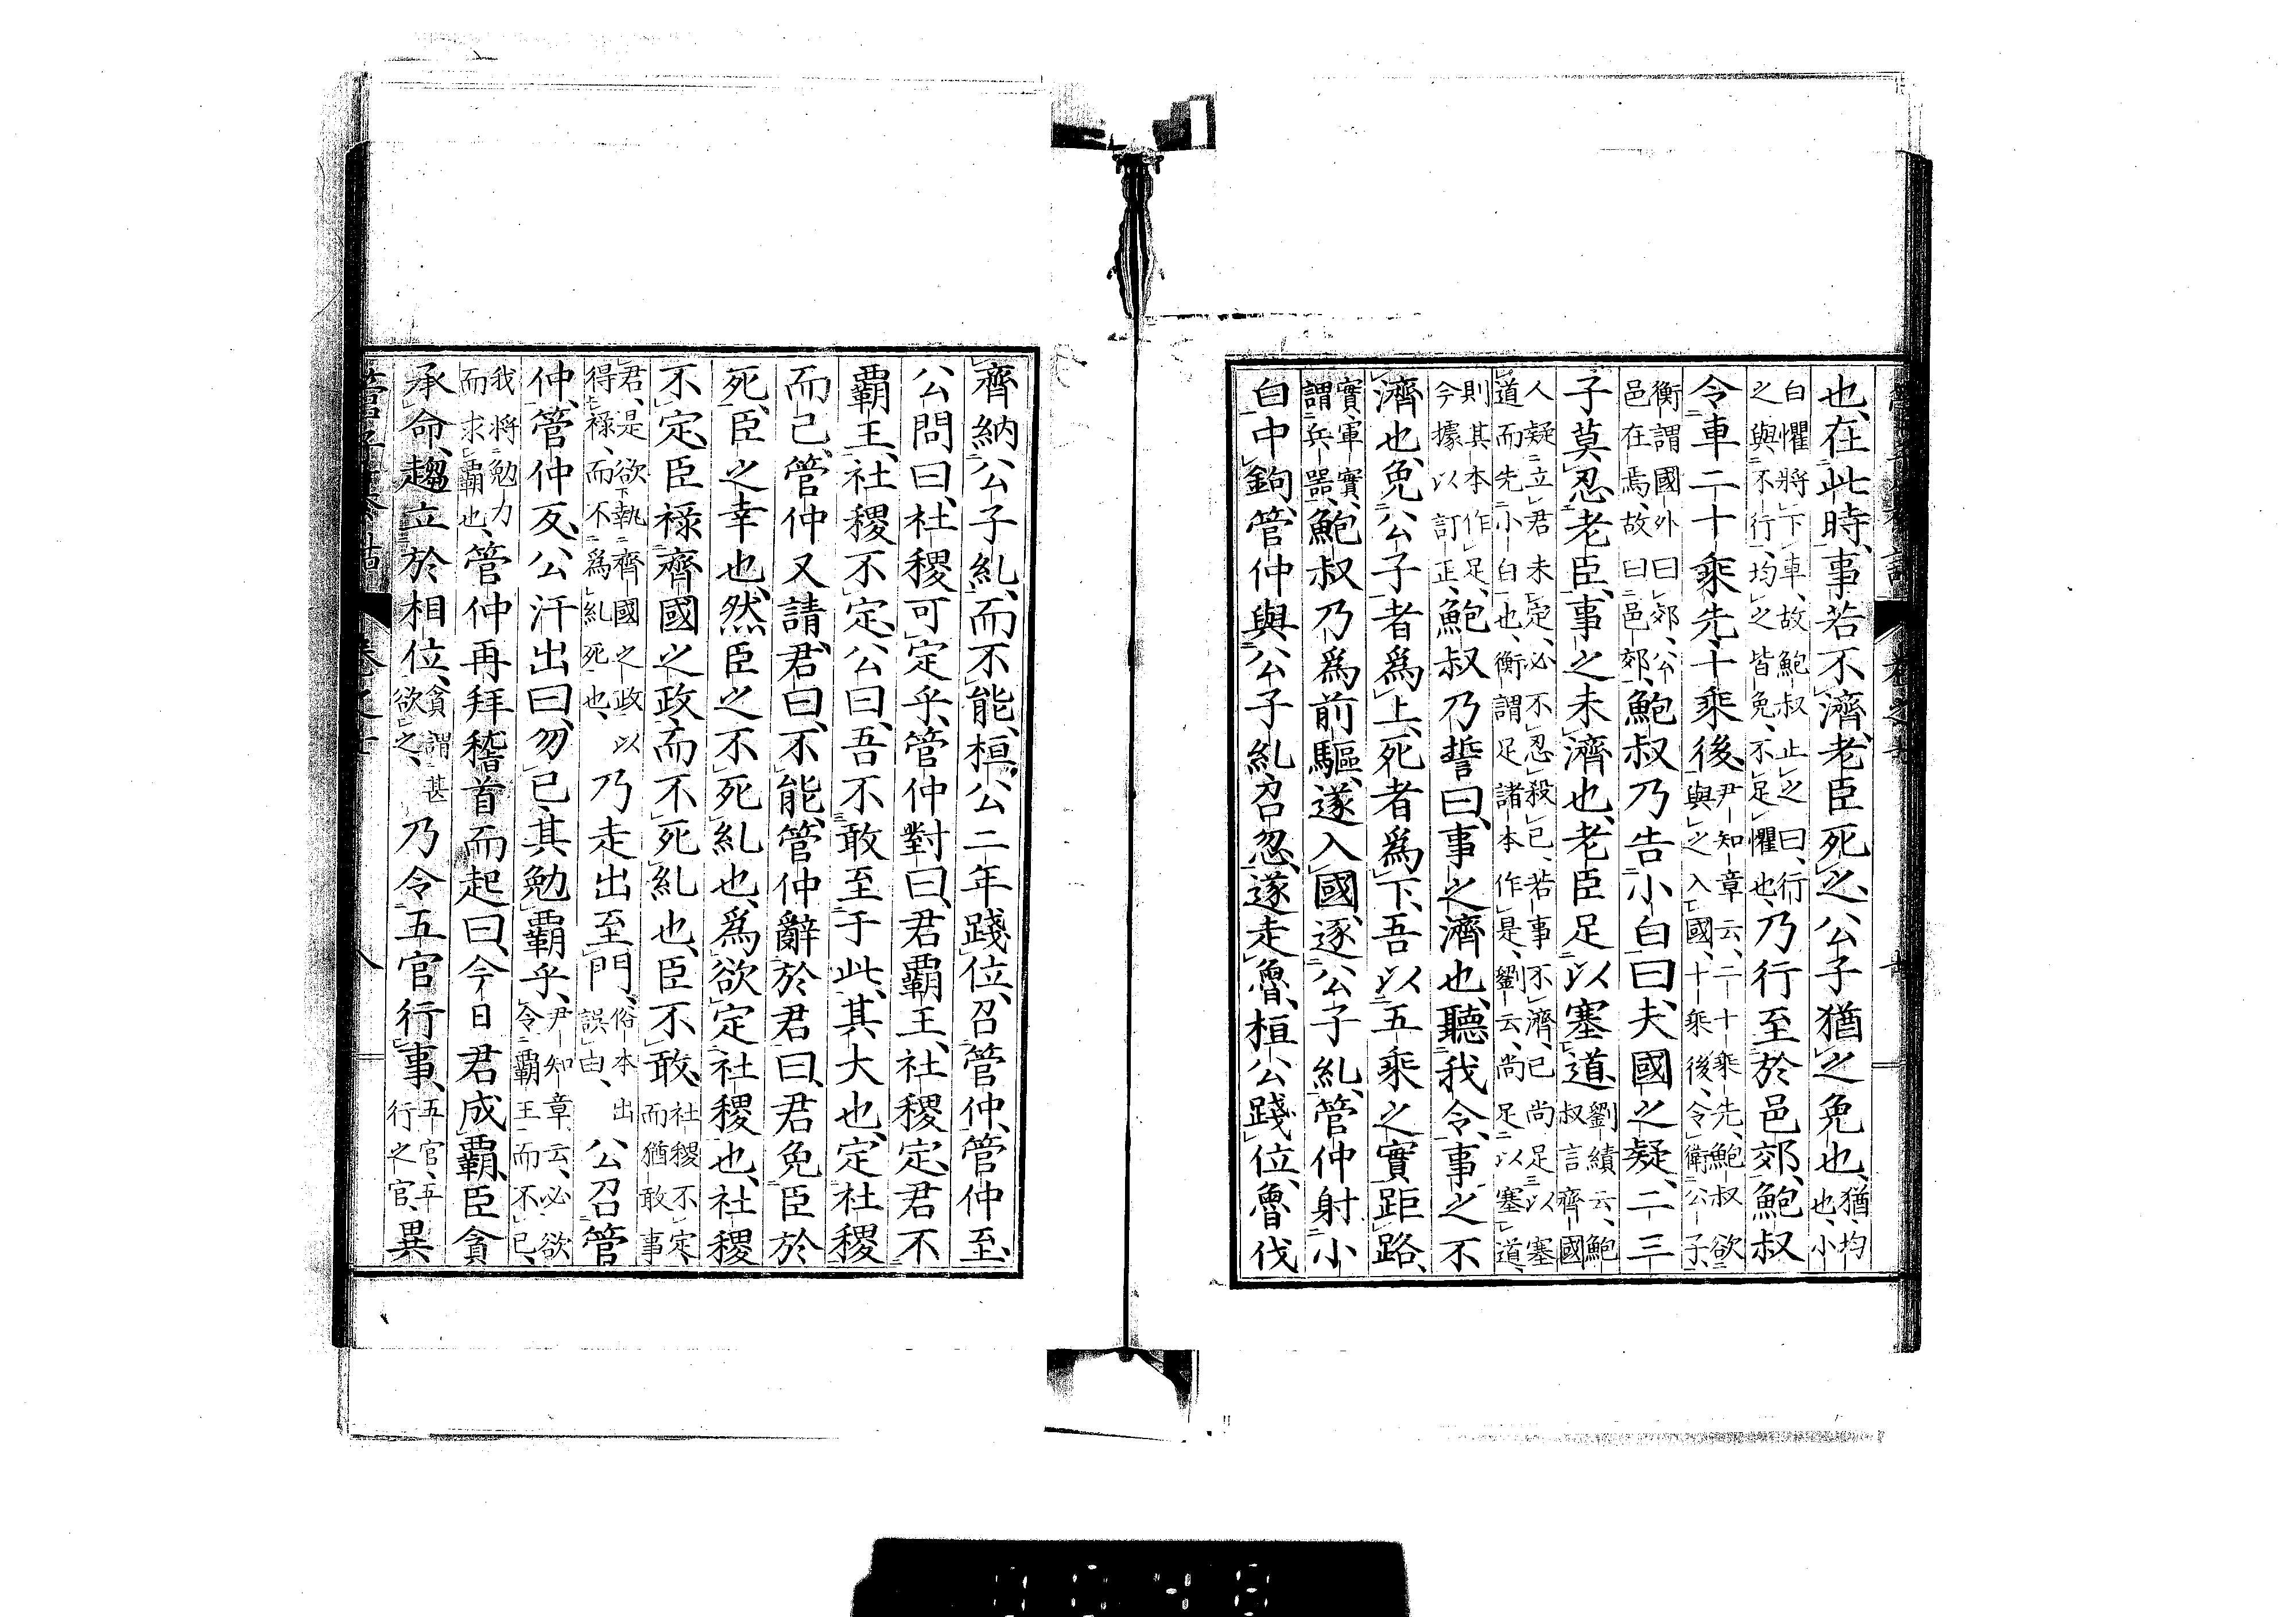 也、在此時、事若不濟、老臣死之、公子猶之免也、猶、均也、小
白懼將下車、故鮑叔止之曰、行之與不行、均之皆免、不足懼也、乃行至於邑郊、鮑叔
令車二十乘先、十乘後、尹知章云、二十乘先、鮑叔欲與之入國、十乘後、令衞公子、
衡謂國外曰郊、公邑在焉、故曰邑郊、鮑叔乃告小白曰、夫國之疑、二三
子莫忍老臣、事之未濟也、老臣足以塞道、劉績云、鮑叔言齊國
人疑立君未定、必不忍殺已、若事不濟、已尚足以塞道而先小白也、衡謂足諸本作是、劉云、尚足以塞道、
則其本作足、今據以訂正、鮑叔乃誓曰、事之濟也、聽我令、事之不
濟也、免公子者爲上、死者爲下、吾以五乘之實距路、
實、軍實、謂兵器、鮑叔乃爲前驅、遂入國、逐公子糺、管仲射小
白中鉤、管仲與公子糺、召忽、遂走魯、桓公踐位、魯伐
齊納公子糺、而不能、桓公二年踐位、召管仲、管仲至、
公問曰、社稷可定乎、管仲對曰、君霸王、社稷定、君不
霸王、社稷不定、公曰、吾不敢至于此、其大也、定社稷
而已、管仲又請、君曰、不能、管仲辭於君曰、君免臣於
死、臣之幸也、然臣之不死糺也、爲欲定社稷也、社稷
不定、臣祿齊國之政、而不死糺也、臣不敢、社稷不定、而猶敢事
君、是欲執齊國之政、以得祿、而不爲糺死也、乃走出至門、俗本出誤白、公召管
仲、管仲反、公汗出曰、勿已、其勉霸乎、尹知章云、必欲令霸王而不已、
我將勉力而求霸也、管仲再拜稽首而起曰、今日君成霸、臣貪
承命、趨立於相位、貪謂甚欲之、乃令五官行事、五官、五行之官、異